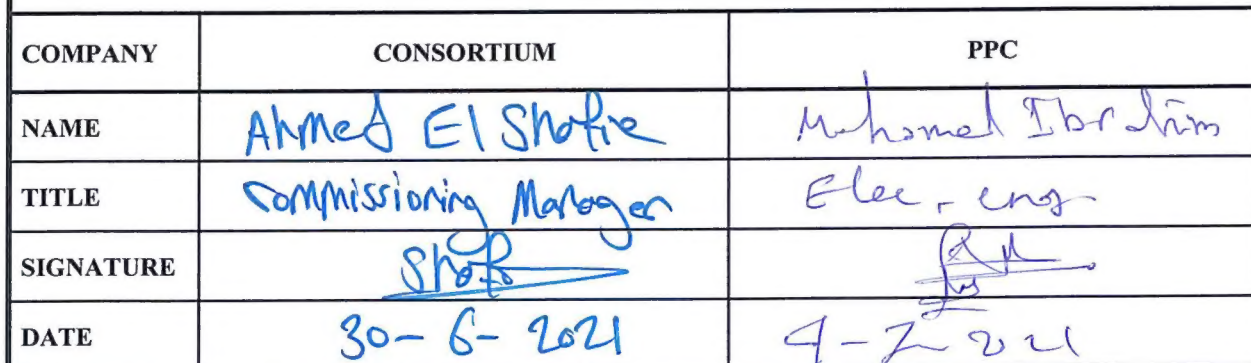 COMPANY CONSORTIUM PPC
NAME Ahmed El Shofie Mohamed Ibrahim
TITLE Commissioning Manager Elec. eng
SIGNATURE
DATE 30-6-2021 4-7-2021